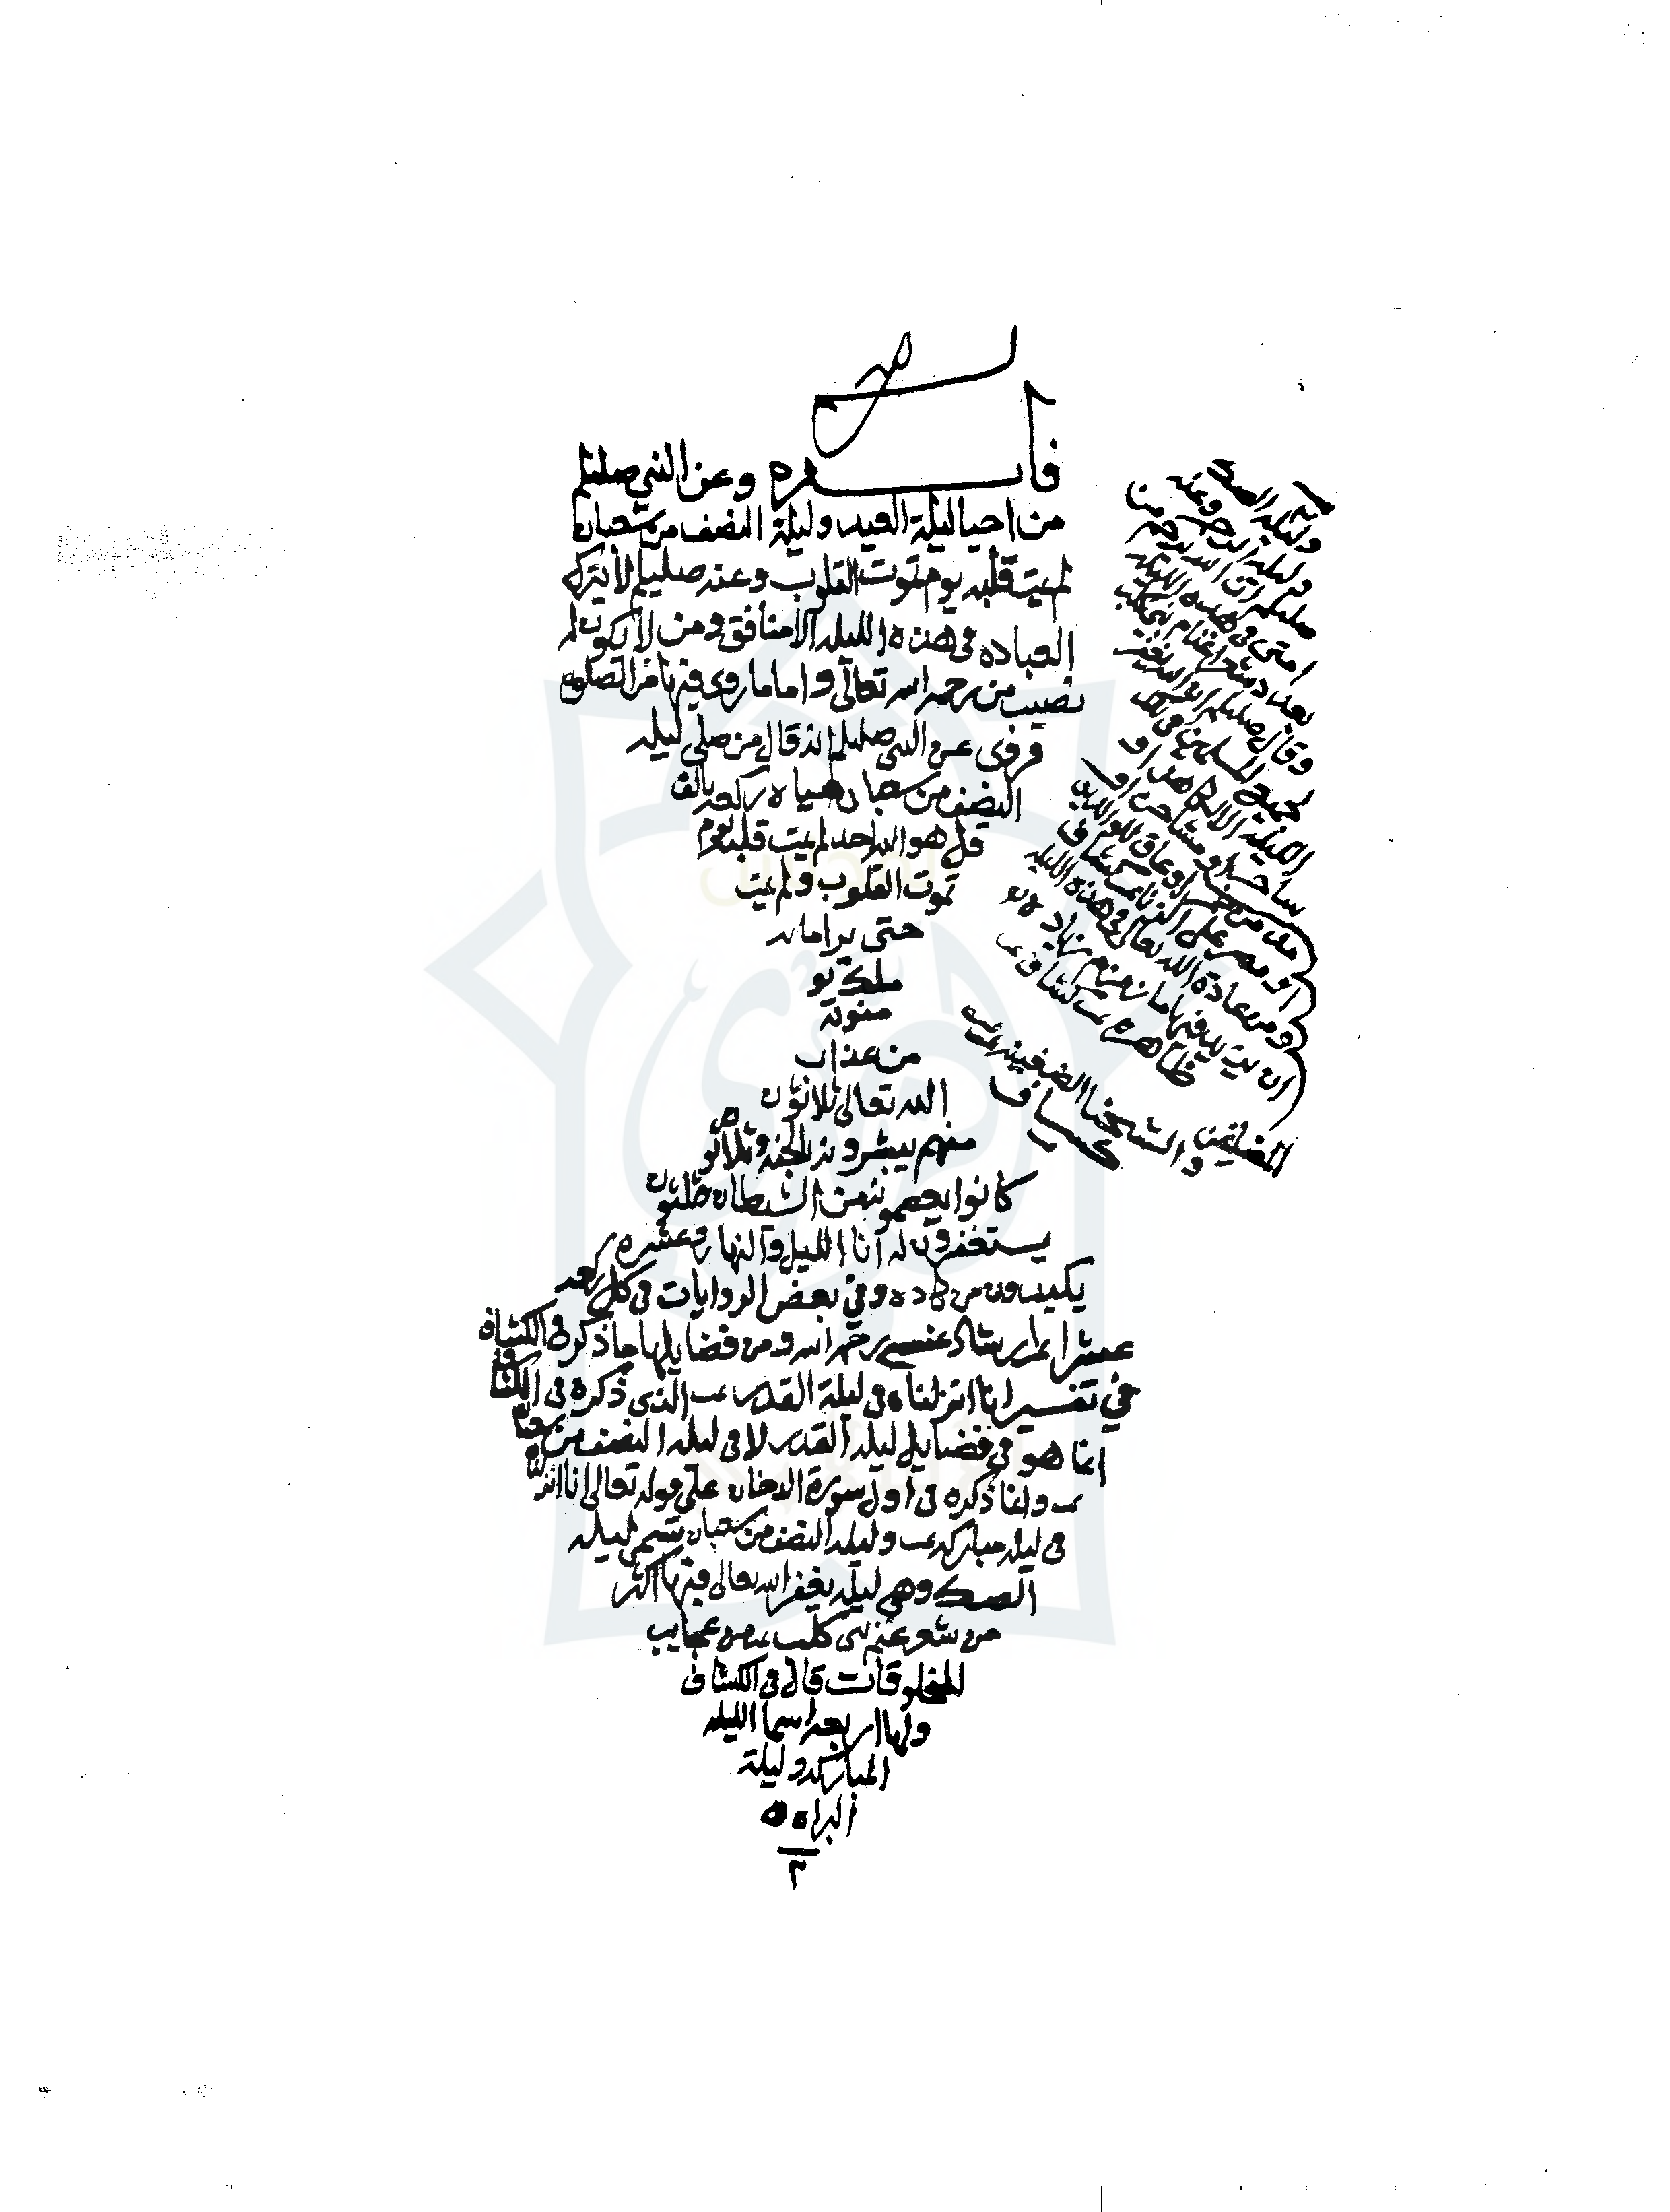 فائده وعن النبي صليلم
من احيا ليلة العيد وليلة النصف من شعبان
لم يمت قلبه يوم تموت القلوب وعنه صليلم لا يترك
العباده في هذه الليله الا منافق ومن لا يكون له
نصيب من رحمه الله تعالى واما ما روي فيها من الصلوه
فروى عن النبي صليلم انه قال من صلى ليله
النصف من شعبان مياه ركعه بالف
قل هو الله احد لم يمت قلبه يوم
تموت القلوب ولم يمت
حتى يرا مايه
ملك يو
منونه
من عذاب
الله تعالى ثلاثون
منهم يبشرونه بالجنه وثلاثون
كانوا يعصمونه من الشيطان وثلثون
يستغفرون له آنا الليل والنهار وعشره
يكيدون من كاده وفي بعض الروايات في كل ركعه
عشرا رحمه الله ومن فضايلها ما ذكره في الكشاف
في تفسير انا انزلناه في ليلة القدر الذي ذكره في الكشاف
انما هو في فضايل ليله القدر لا في ليله النصف من شعبان
وانما ذكره في اول سورة الدخان على قوله تعالى انا انزلناه
في ليله مباركه وليله النصف من شعبان تسمى ليله
الصك وهي ليله يغفر الله تعالى فيها اكثر
من شعر غنم بني كلب من عجايب
المخلوقات قال في الكشاف
ولها اربعه اسما الليله
المباركه وليلة
البراه
٢
وليله الصك
وليله الرحمه وعنه
صليلم ان الله يرحم من
امتي في هذه الليله
بعدد شعر اغنام بني كلب
وقال صليلم ان الله يغفر
لجميع المسلمين في تلك
الليلة الا لكاهن او
ساحر او مشاحن او
مدمن خمر او عاق للوالدين
او مصر على الزنا كشاف
ومن عادة الله تعالى في هذه الليله
ان يزيد فيها ما زمزم زيادة
ظاهره كشاف